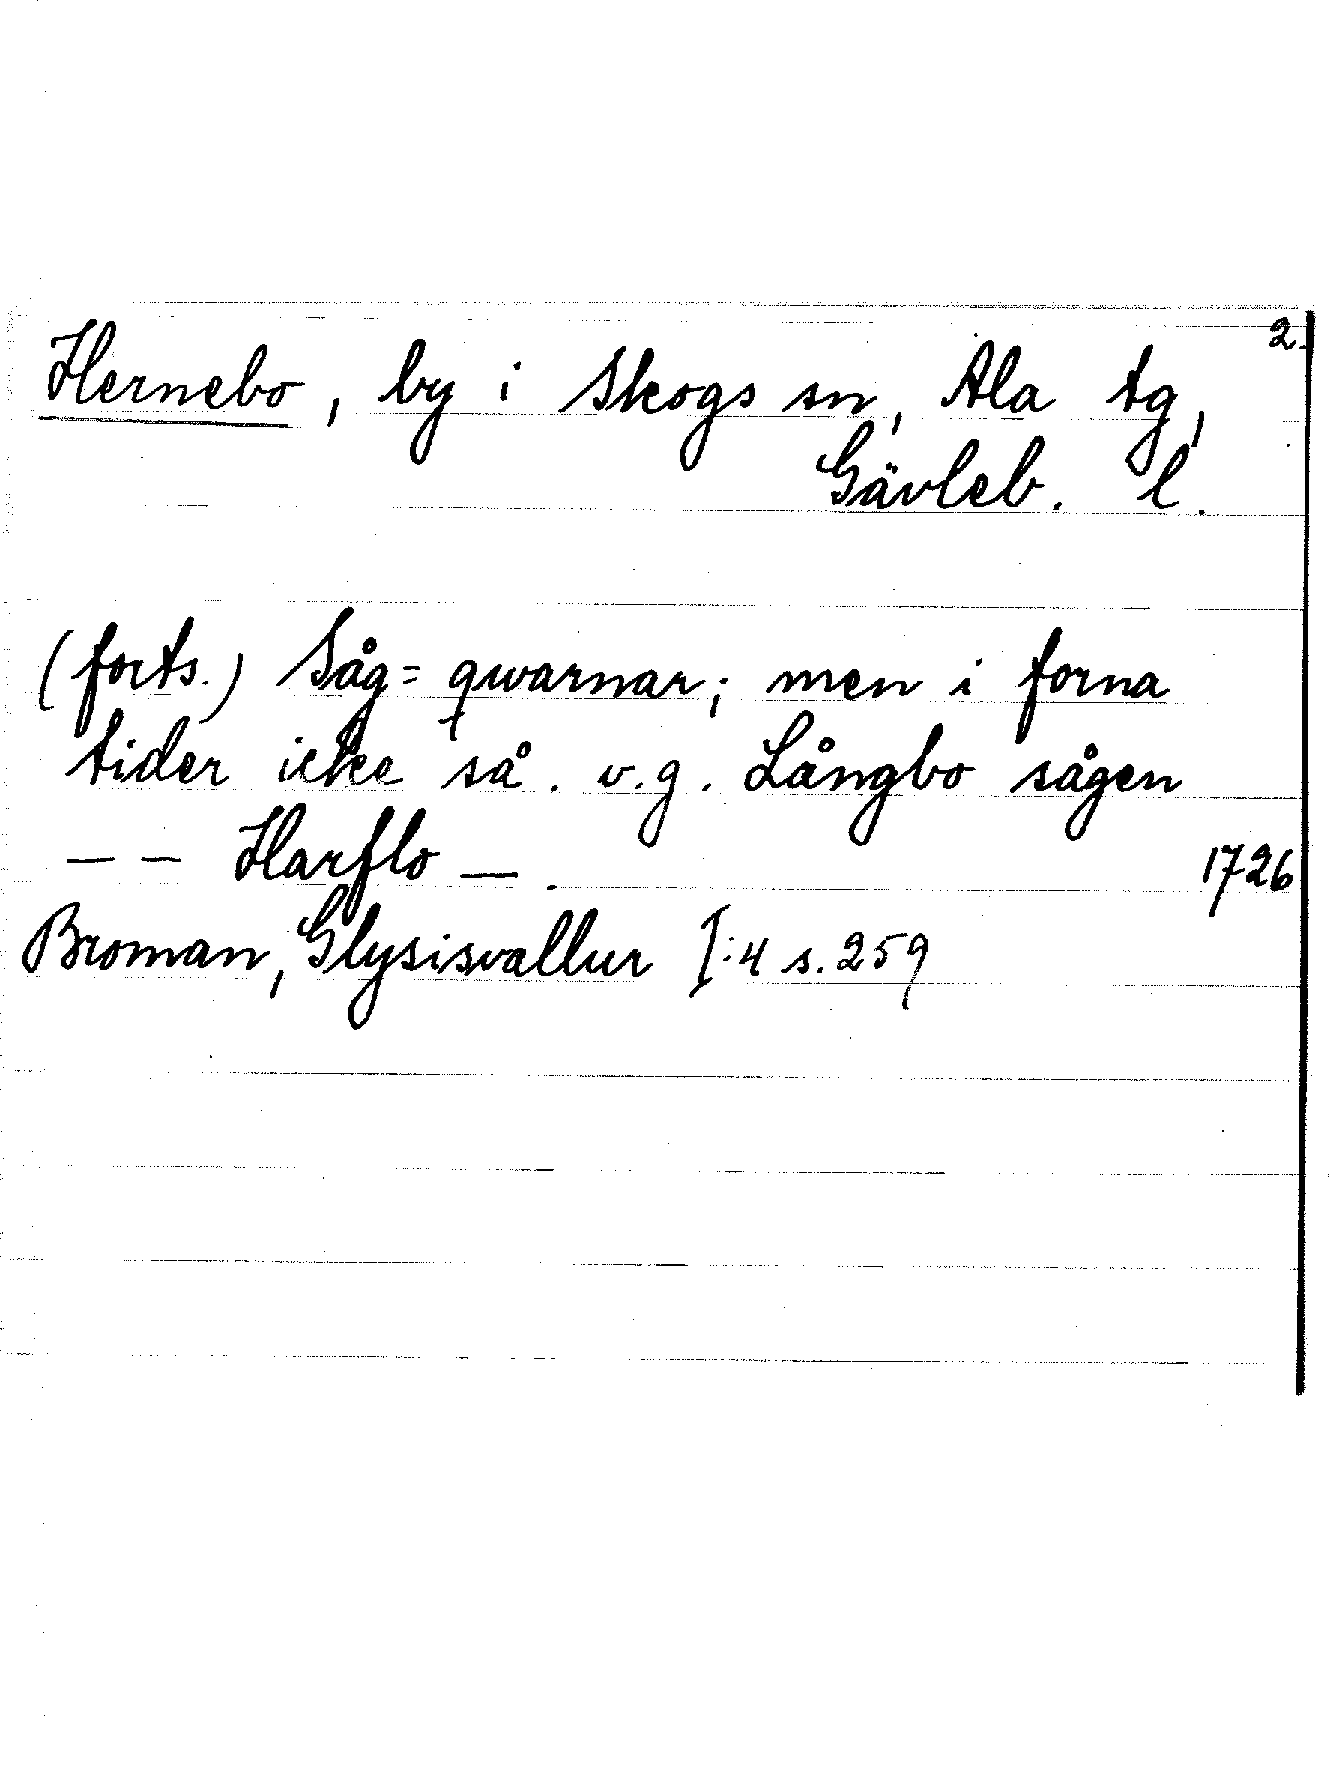 2.
Hernebo, by i Skogs sn, Ala tg,
Gävleb. l.
(forts.) Såg= qwarnar; men i forna
tider icke så. v.g. Långbo sågen
— — Harflo — .
1726
Broman, Glysisvallur I:4 s. 259